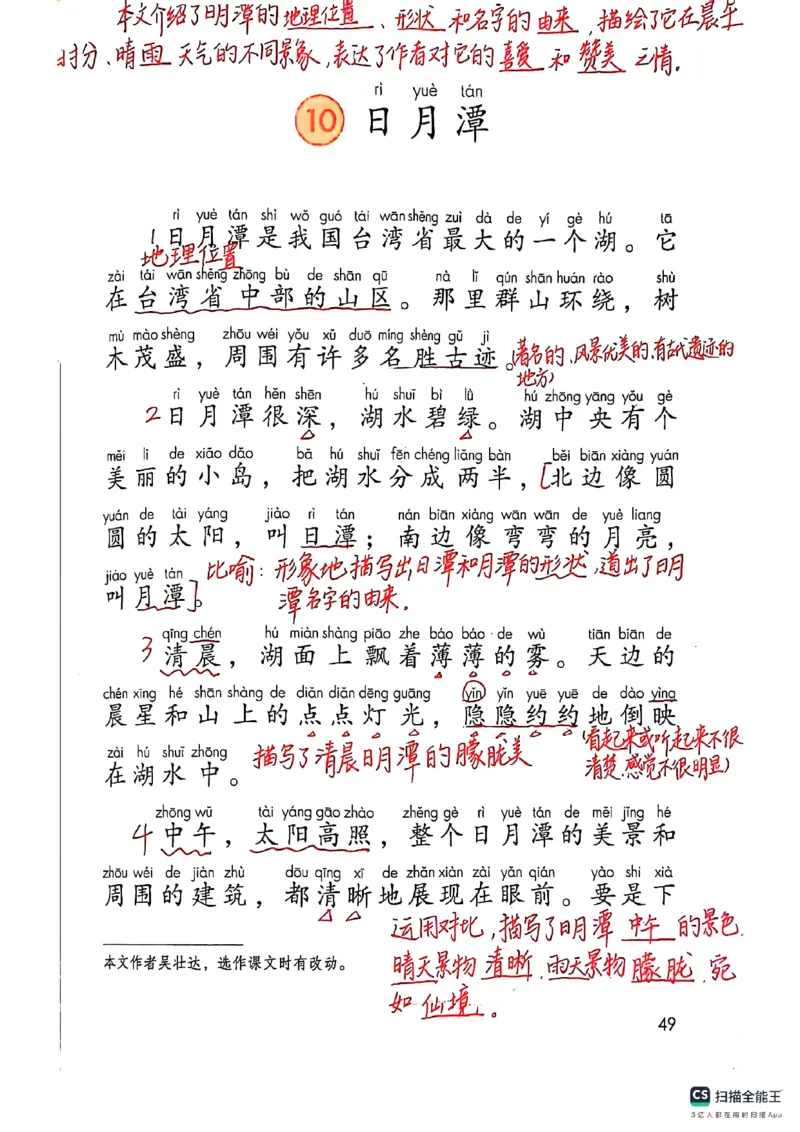 本文介绍了日月潭的地理位置、形状和名字的由来,描绘了它在晨午
时分、晴雨天气的不同景象,表达了作者对它的喜爱和赞美之情.
rì yuè tán
10 日月潭
rì yuè tán shì wǒ guó tái wān shěng zuì dà de yí gè hú tā
1日月潭是我国台湾省最大的一个湖。它
地理位置
zài tái wān shěng zhōng bù de shān qū nà lǐ qún shān huán rào shù
在台湾省中部的山区。那里群山环绕,树
mù mào shèng zhōu wéi yǒu xǔ duō míng shèng gǔ jì
木茂盛,周围有许多名胜古迹。(著名的、风景优美的、有古代遗迹的
地方)
rì yuè tán hěn shēn hú shuǐ bì lǜ hú zhōng yāng yǒu gè
2日月潭很深,湖水碧绿。湖中央有个
měi lì de xiǎo dǎo bǎ hú shuǐ fēn chéng liǎng bàn běi biān xiàng yuán
美丽的小岛,把湖水分成两半,[北边像圆
yuán de tài yáng jiào rì tán nán biān xiàng wān wān de yuè liang
圆的太阳,叫日潭;南边像弯弯的月亮,
jiào yuè tán
叫月潭]。
比喻:形象地描写出日潭和月潭的形状,道出了日月
潭名字的由来.
qīng chén hú miàn shàng piāo zhe báo báo de wù tiān biān de
3清晨,湖面上飘着薄薄的雾。天边的
chén xīng hé shān shàng de diǎn diǎn dēng guāng yǐn yǐn yuē yuē de dào yìng
晨星和山上的点点灯光,隐隐约约地倒映
(看起来或听起来不很
清楚,感觉不很明显)
zài hú shuǐ zhōng
在湖水中。描写了清晨日月潭的朦胧美
zhōng wǔ tài yáng gāo zhào zhěng gè rì yuè tán de měi jǐng hé
4中午,太阳高照,整个日月潭的美景和
zhōu wéi de jiàn zhù dōu qīng xī de zhǎn xiàn zài yǎn qián yào shi xià
周围的建筑,都清晰地展现在眼前。要是下
运用对比,描写了日月潭中午的景色.
本文作者吴壮达,选作课文时有改动。
晴天景物清晰,雨天景物朦胧,宛
如仙境。
49
CS 扫描全能王
3亿人都在用的扫描App